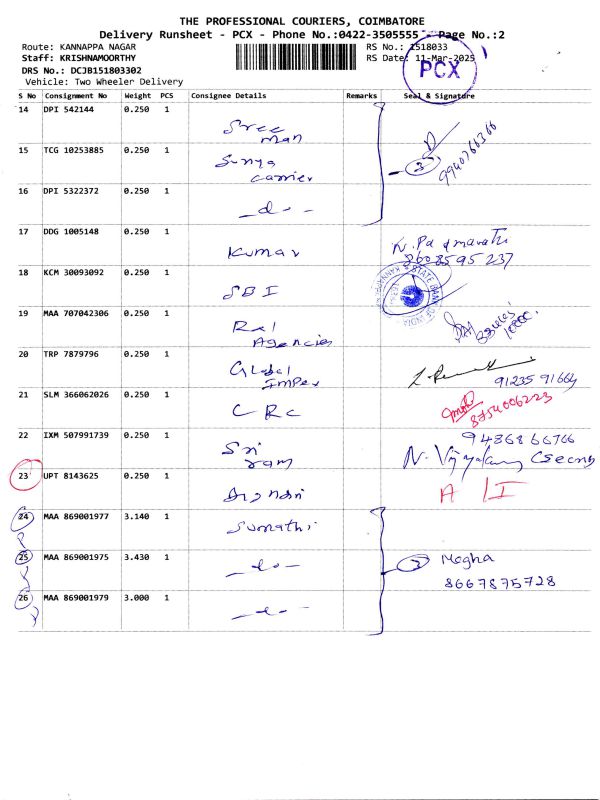 THE PROFESSIONAL COURIERS, COIMBATORE
Delivery Runsheet - PCX - Phone No.:0422-3505555 - Page No.:2
Route: KANNAPPA NAGAR RS No.: 1518033
Staff: KRISHNAMOORTHY RS Date: 11-Mar-2025
DRS No.: DCJB151803302 PCX
Vehicle: Two Wheeler Delivery
S No Consignment No Weight PCS Consignee Details Remarks Seal & Signature
14 DPI 542144 0.250 1 Sree
man
15 TCG 10253885 0.250 1 Surya
Carrier 3 9940766366
16 DPI 5322372 0.250 1 -do-
17 DDG 1005148 0.250 1 Kumar N. Padmavathi
8608595237
18 KCM 30093092 0.250 1 SBI STATE BANK OF INDIA
19 MAA 707042306 0.250 1
Agencies
20 TRP 7879796 0.250 1 Global
Impex 91235 91664
21 SLM 366062026 0.250 1 CRC 8754006223
22 IXM 507991739 0.250 1 Sri
ram 9486866766
23 UPT 8143625 0.250 1 A/I
24 MAA 869001977 3.140 1 Sumathi
25 MAA 869001975 3.430 1 -do- 3 Megha
8667875728
26 MAA 869001979 3.000 1 -do-